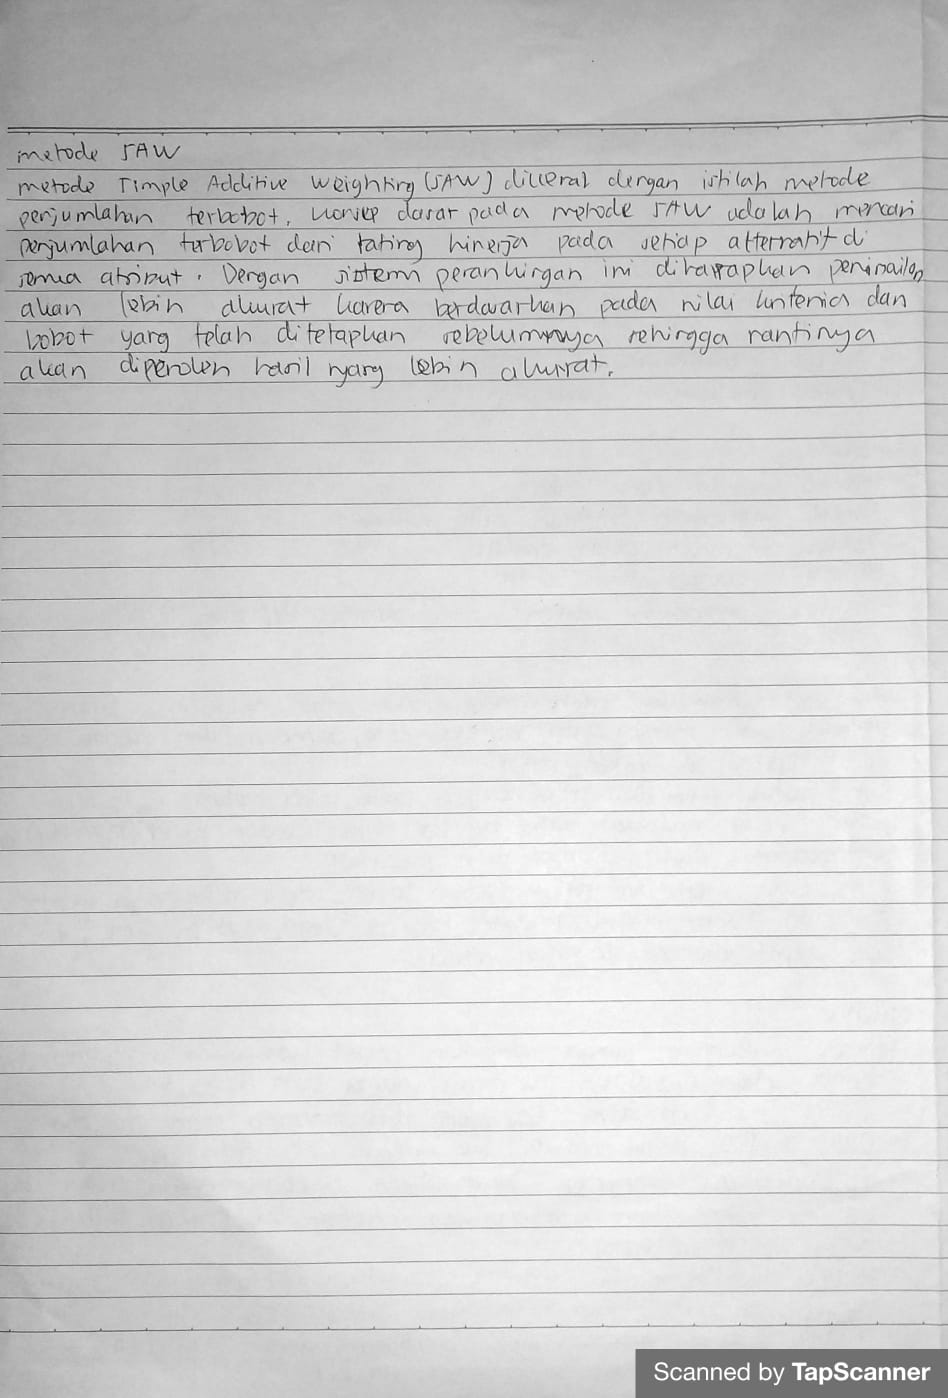 metode SAW
metode Simple Additive Weighting (SAW) dikenal dengan istilah metode
penjumlahan terbobot. Konsep dasar pada metode SAW adalah mencari
penjumlahan terbobot dari rating kinerja pada setiap alternatif di
semua atribut. Dengan sistem perankingan ini diharapkan peninailan
akan lebih akurat karena berdasarkan pada nilai kriteria dan
bobot yang telah ditetapkan sebelumnya sehingga nantinya
akan diperoleh hasil yang lebih akurat.
Scanned by TapScanner